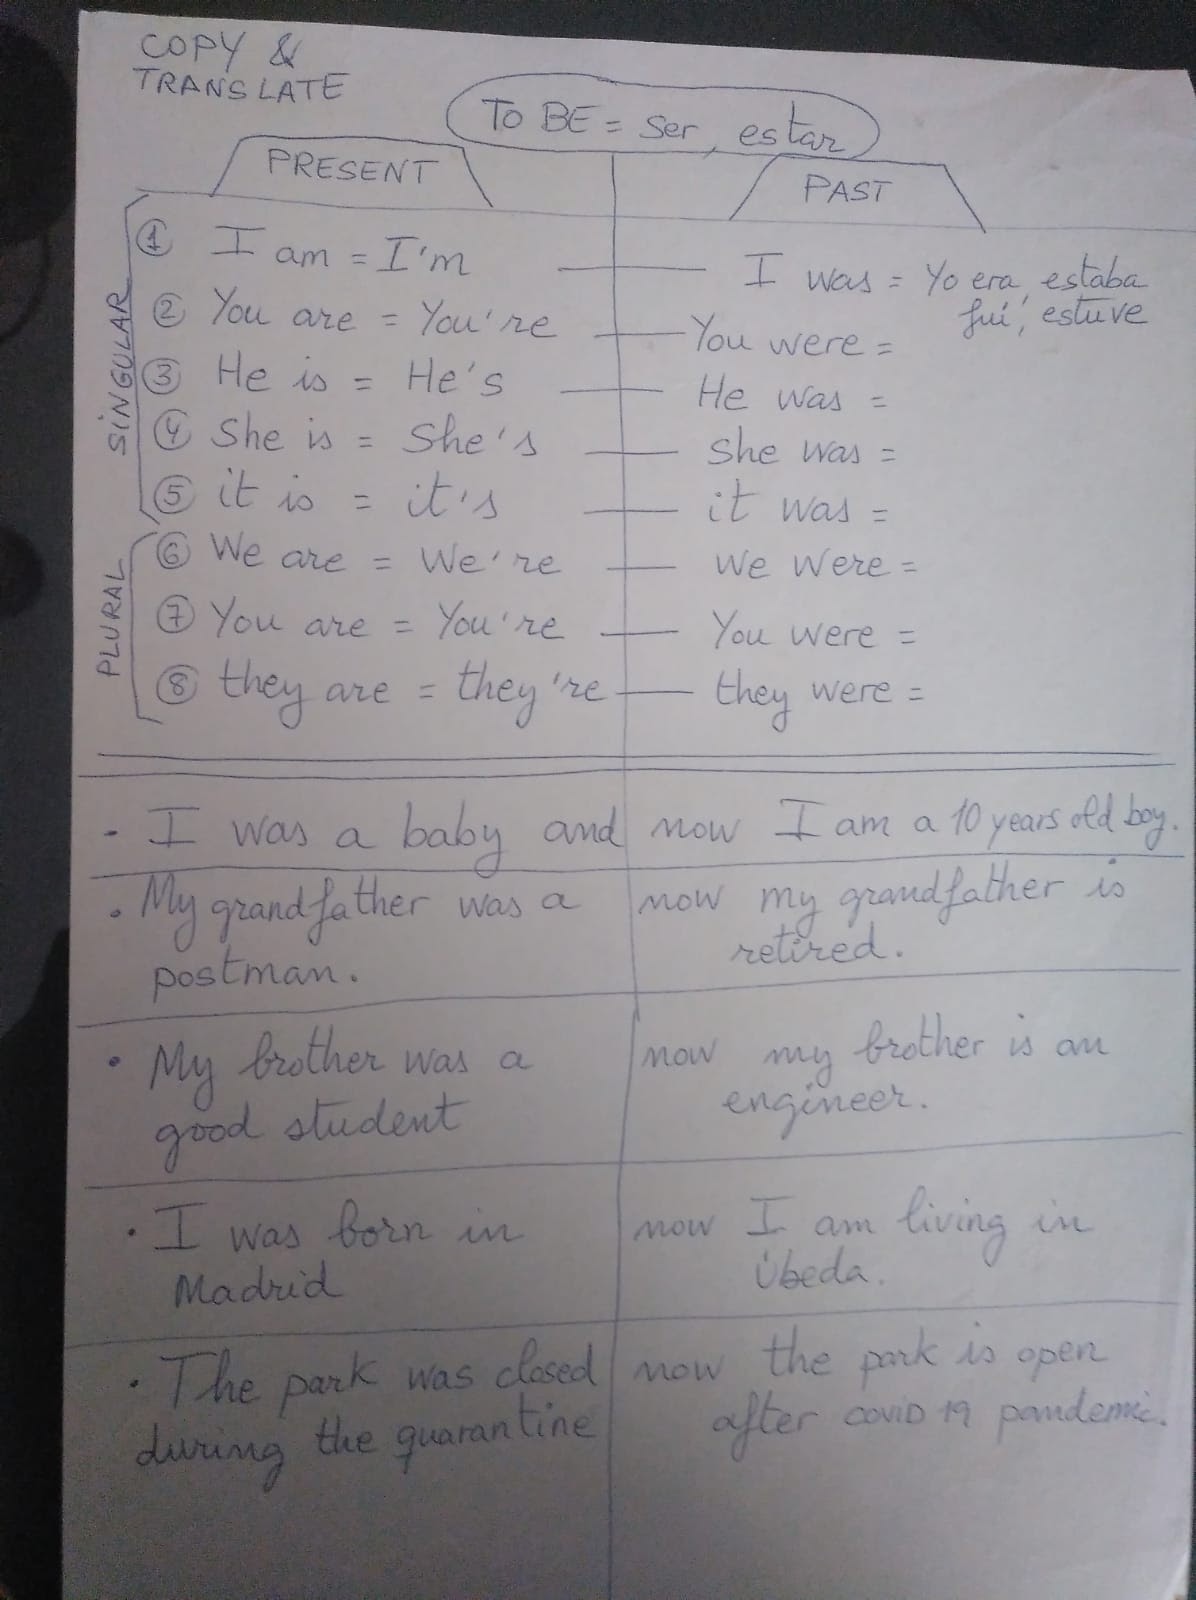 COPY &
TRANSLATE
TO BE = ser, estar
PRESENT
PAST
SINGULAR
① I am = I'm — I was = Yo era, estaba
fui, estuve
② You are = You're — You were =
③ He is = He's — He was =
④ She is = She's — She was =
⑤ it is = it's — it was =
PLURAL
⑥ We are = We're — We were =
⑦ You are = You're — You were =
⑧ they are = they're — they were =
· I was a baby and now I am a 10 years old boy.
· My grandfather was a
postman.
now my grandfather is
retired.
· My brother was a
good student
now my brother is an
engineer.
· I was born in
Madrid
now I am living in
Úbeda.
· The park was closed
during the quarantine
now the park is open
after covid 19 pandemic.